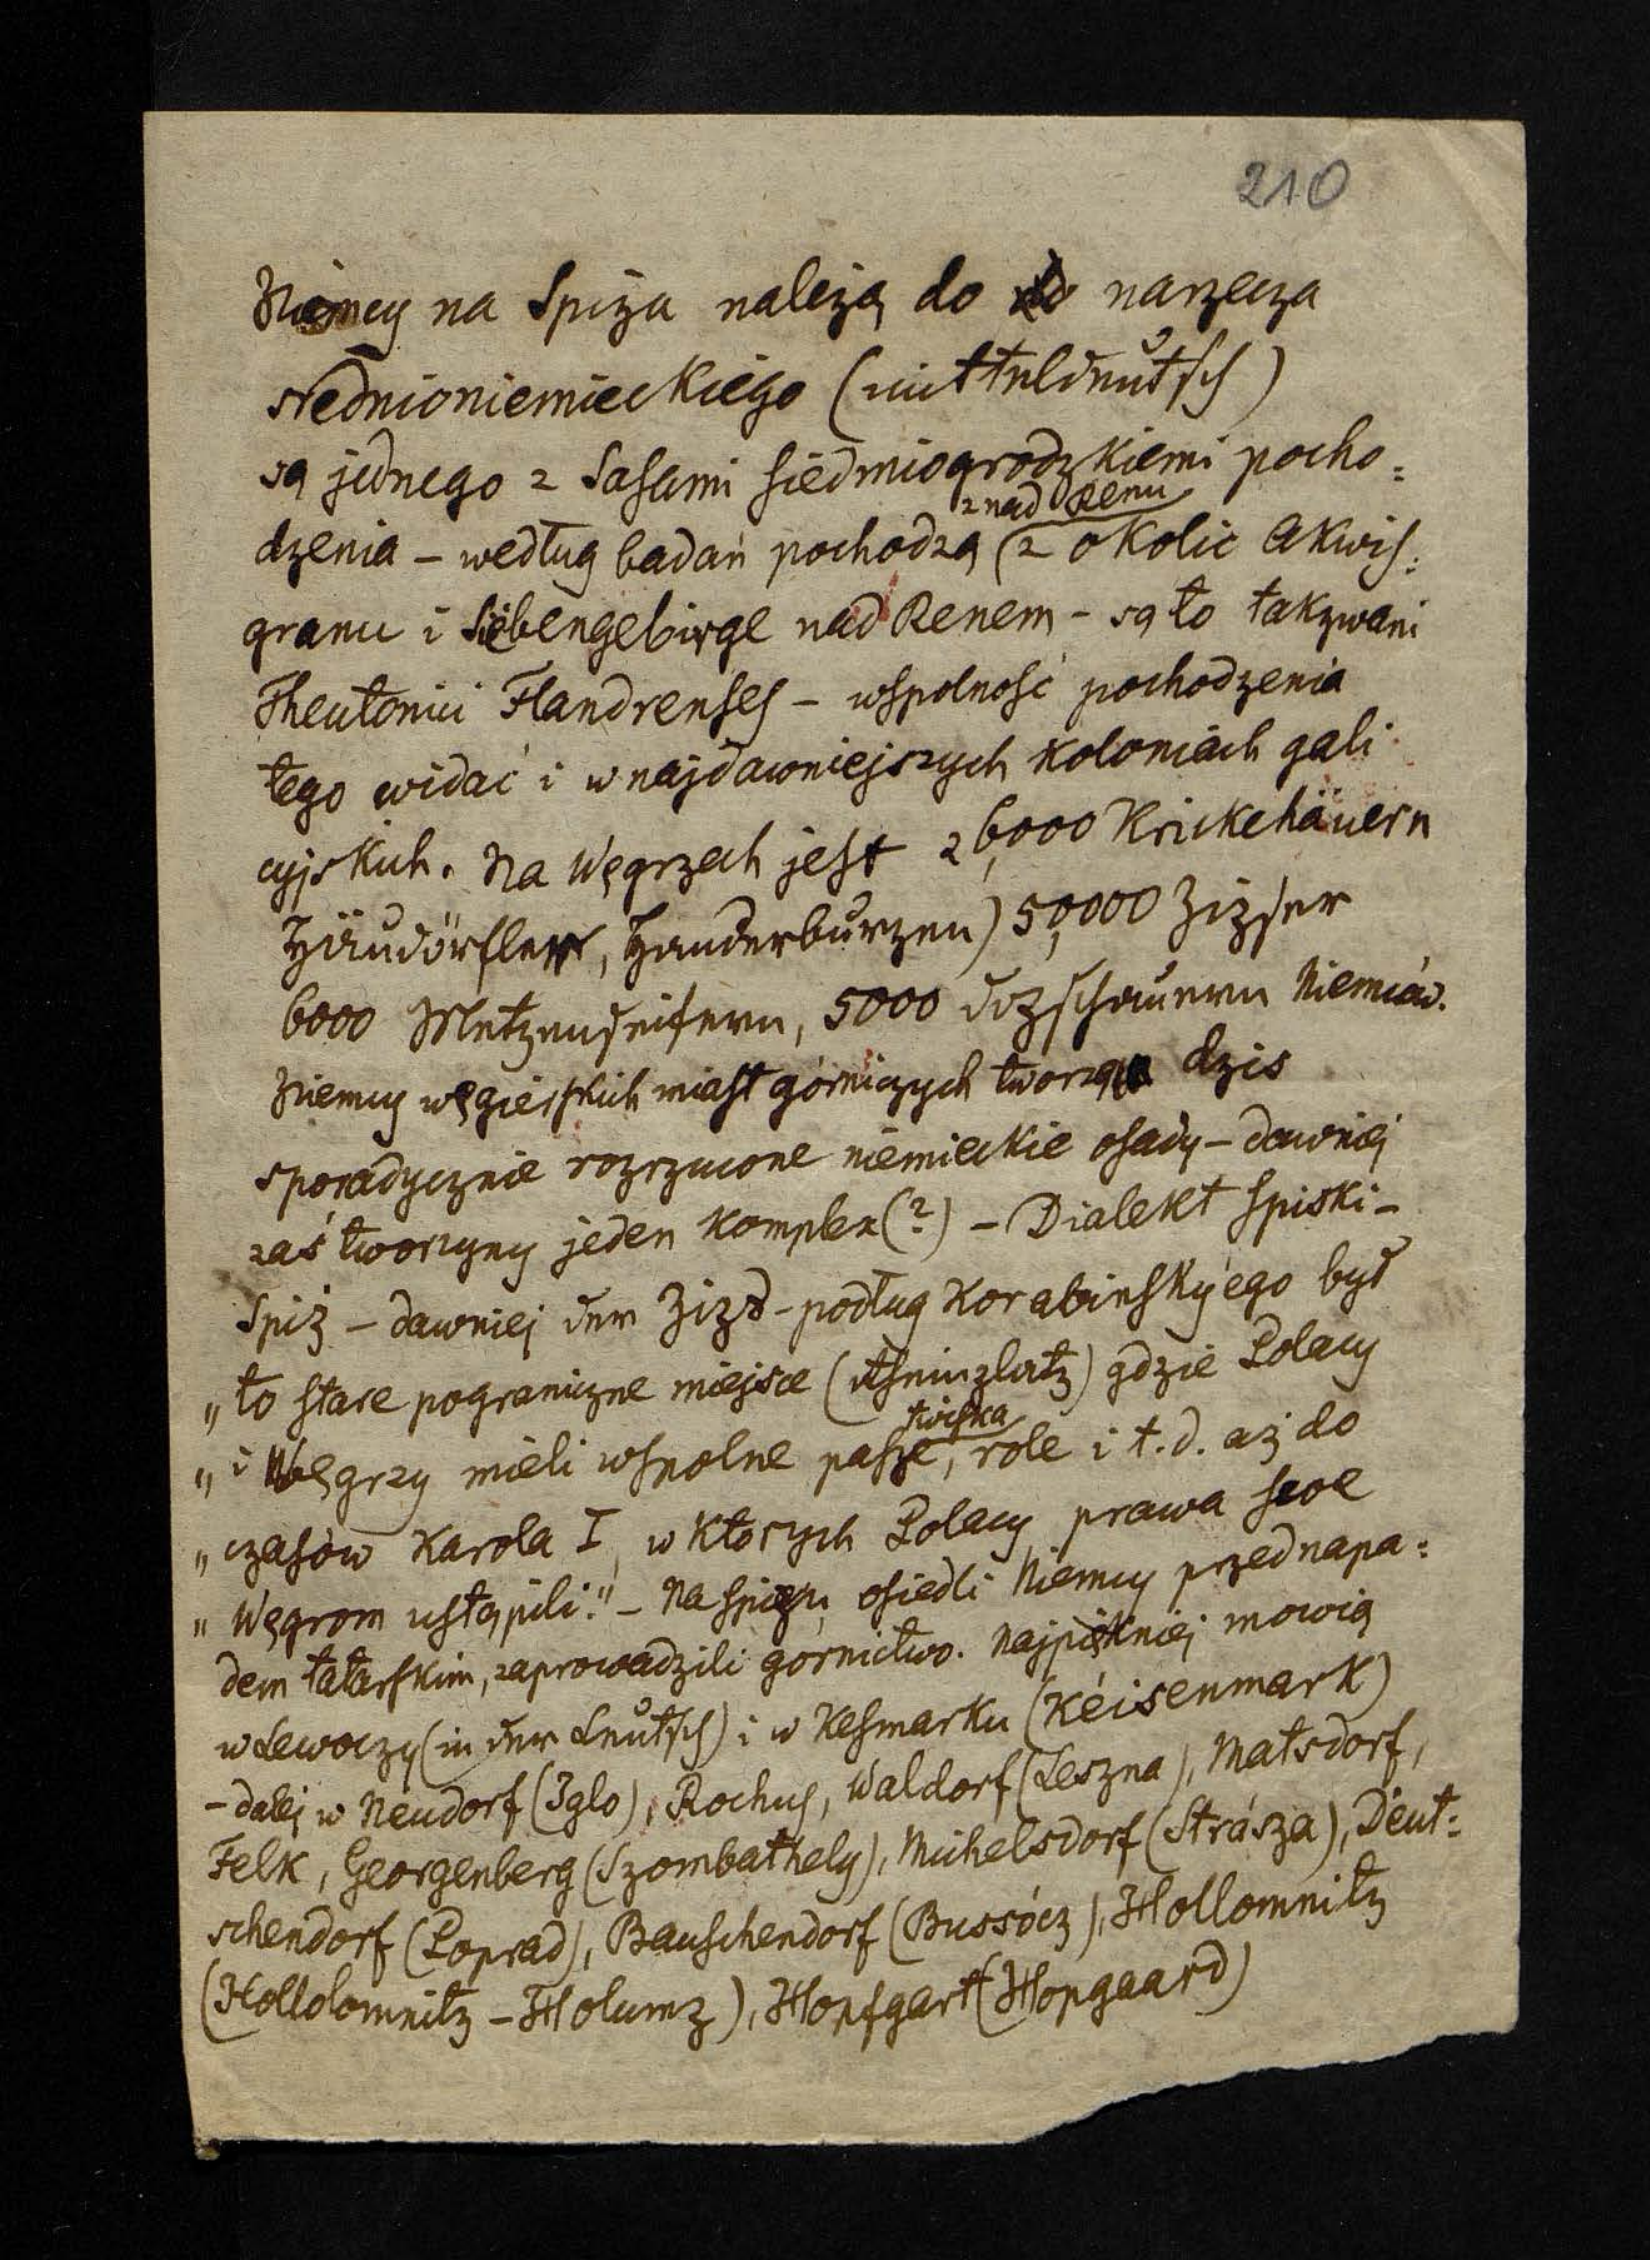 210
Niemcy na Spiżu należą do do narzecza
średnioniemieckiego (mitteldeutsch)
są jednego z Sasami siedmiogrodzkiemi pocho=
dzenia – według badań pochodzą (z okolic Akwis=
z nad Renu
granu i Siebengebirge nad Renem – są to takzwani
Theutonici Flandrenses – wspolność pochodzenia
tego widać i w najdawniejszych koloniach gali
cyjskich. Na Węgrzech jest 26,000 Krickehäuern
Häudörfler, Hauderburzen) 50,000 Zipser
6000 Metzenseifern, 5000 Dozschauern Niemców.
Niemcy węgierskich miast górniczych tworzą dzis
sporadycznie rozrzucone niemieckie osady – dawniej
zaś tworzyny jeden komplex (?) – Dialekt spiski –
Spiż – dawniej der Zizs – podług Korabinsky'ego był
„to stare pograniczne miejsce gdzie Polacy
„i Węgrzy mieli wspolne pasze, role i t. d. aż do
twiska
„czasów Karola I, w ktorych Polacy prawa swe
„Węgrom ustąpili." – Na Spiżu osiedli Niemcy przed napa=
dem tatarskim, zaprowadzili górnictwo. Najpiękniej mowią
w Lewoczy (in der Leutsch) i w Kesmarku (Kéisenmark)
– dalej w Neudorf (Iglo), Rochus, Waldorf (Leszna), Matsdorf,
Felk, Georgenberg (Szombathely), Michelsdorf (Strásza), Deut=
schendorf (Poprad), Bauschendorf (Bussócz), Hollomnitz
(Hollolomnitz – Holumz), Hopfgart (Hopgaard)